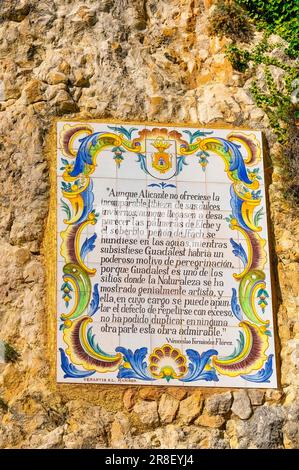 "Aunque Alicante no ofreciese la
incomparable tibieza de sus dulces
inviernos; aunque llegasen a desa-
parecer las palmeras de Elche y
el soberbio peñón de Ifach se
hundiese en las aguas, mientras
subsistiese Guadalest habría un
poderoso motivo de peregrinación,
porque Guadalest es uno de los
sitios donde la Naturaleza se ha
mostrado genialmente artista, y a
ella, en cuyo cargo se puede apun-
tar el defecto de repetirse con exceso,
no ha podido duplicar en ninguna
otra parte esta obra admirable."
Wenceslao Fernández Flórez
alamy
Image ID: 2R8EYJ4
www.alamy.com